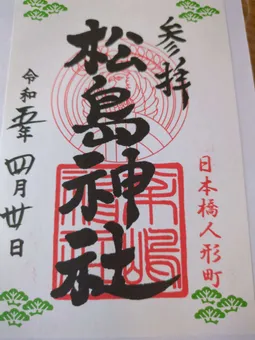 参拝
松島神社
日本橋人形町
令和五年四月廿日